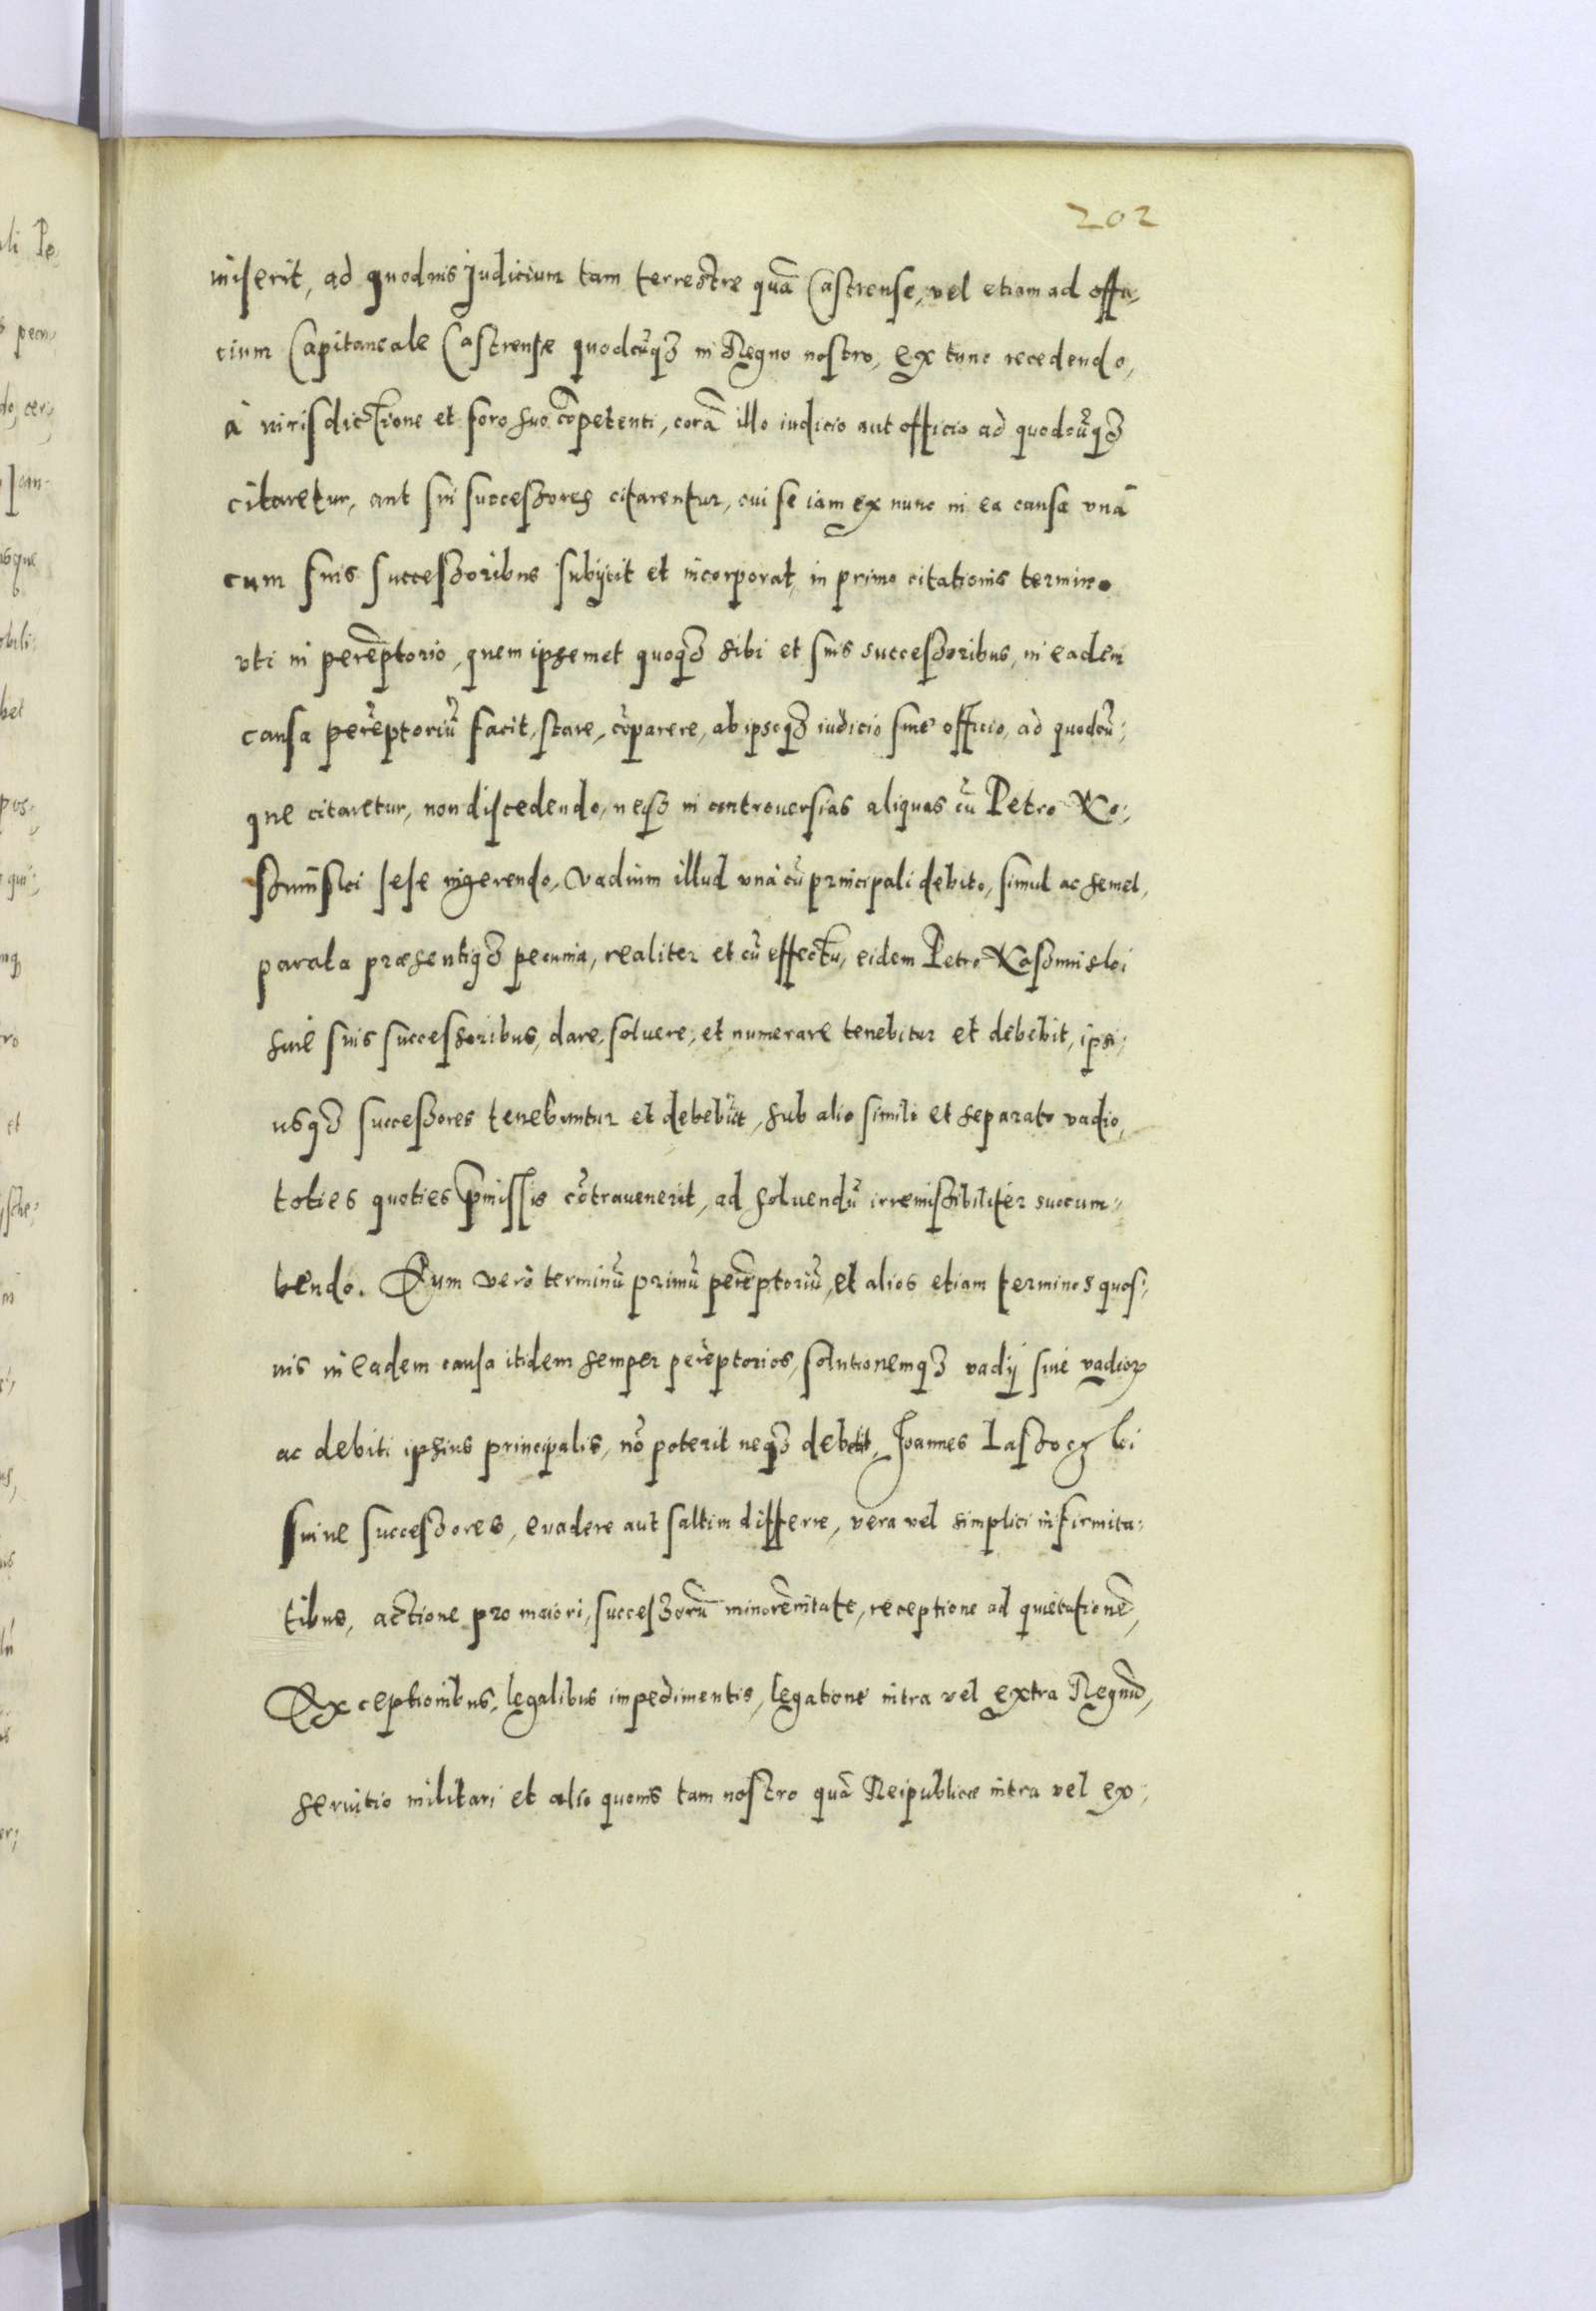 202
miserit, ad quoduis Judicium tam terrestre quā Castrense, vel etiam ad offi,
cium Capitaneale Castrense quodcūqȝ in Regno nostro, ex tunc recedendo,
à iurisdictione et foro suo cōpetenti, corā illo iudicio aut officio ad quodcūqȝ
citaretur, aut sui successores citarentur, cui se iam ex nunc in ea causa vnà
cum suis successoribus subijcit et incorporat, in primo citationis termino
vti in perēptorio, quem ipsemet quoqȝ sibi et suis successoribus, in eadem
causa perēptoriū facit, stare, cōparere, ab ipsoqȝ iudicio siue officio, ad quodcū:
que citaretur, non discedendo, neqȝ in controuersias aliquas cū Petro Ko:
sminski sese ingerendo, Vadium illud vnà cū principali debito, simul ac semel,
parata præsentiqȝ pecunia, realiter et cū effectu, eidem Petro Kosminski
siue suis successoribus, dare, soluere, et numerare tenebitur et debebit, ipsi:
usqȝ successores tenebuntur et debebūt, sub alio simili et separato vadio,
toties quoties p̄missis cōtrauenerit, ad soluendū irremissibiliter succum:
bendo. Quem verò terminū primū perēptoriū, et alios etiam terminos quos:
uis in eadem causa itidem semper perēptorios, solutionemqȝ vadij siue vadioꝝ
ac debiti ipsius principalis, nō poterit neqȝ debebit, Joannes Lasoczki
suiue successores, euadere aut saltim differre, vera vel simplici infirmita:
tibus, actione pro maiori, successorū minorēnitate, receptione ad quietationē,
Exceptionibus, legalibus impedimentis, legatione intra vel extra Regnū,
seruitio militari et alio quouis tam nostro quā Reipublicæ intra vel ex: